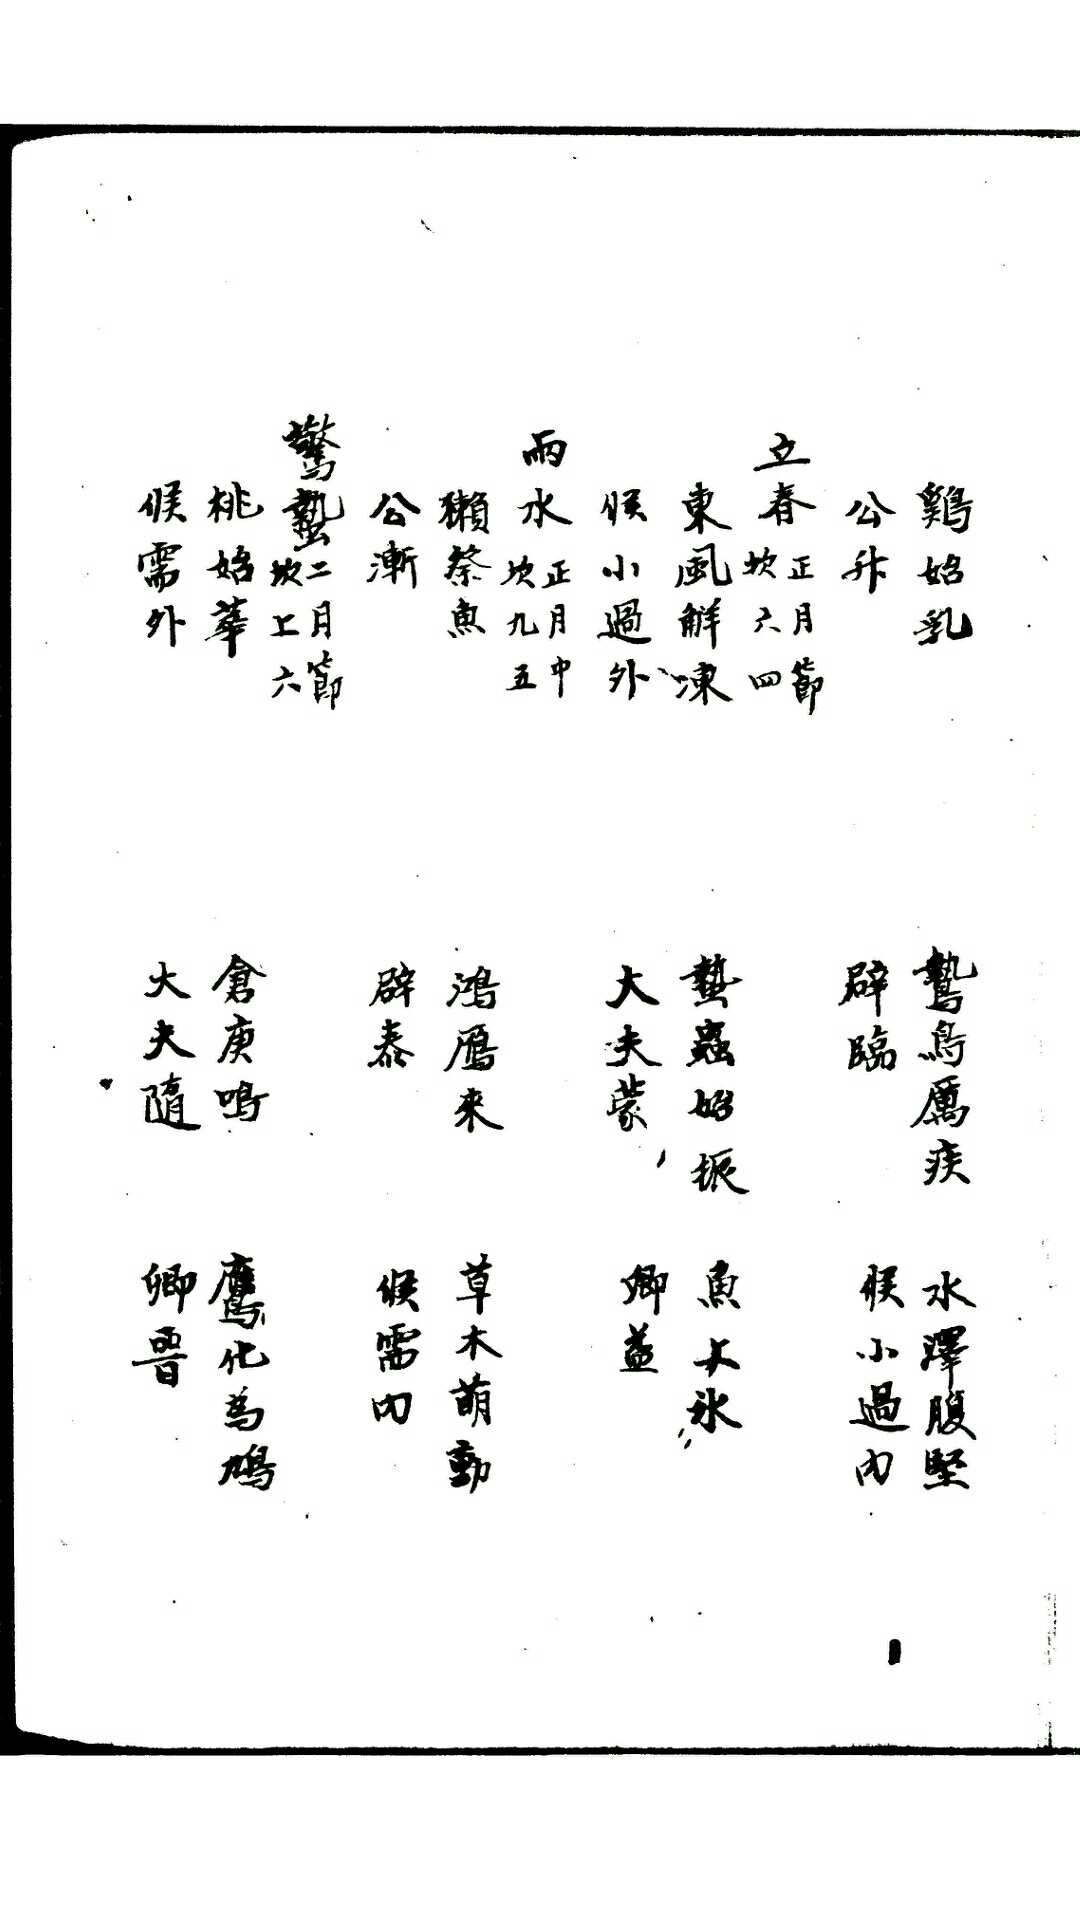 鷄始乳 鷙鳥厲疾 水澤腹堅
公升 辟臨 侯小過內
立春 正月節 坎六四
東風解凍 蟄蟲始振 魚上氷
侯小過外 大夫蒙 卿益
雨水 正月中 坎九五
獺祭魚 鴻鴈來 草木萌動
公漸 辟泰 侯需內
驚蟄 二月節 坎上六
桃始華 倉庚鳴 鷹化為鳩
侯需外 大夫隨 卿晉